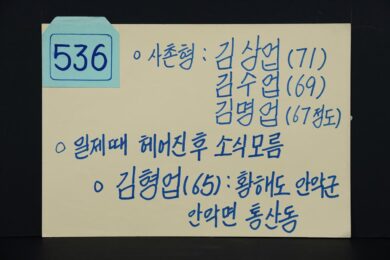 536
○ 사촌형 : 김상업 (71)
김수업 (69)
김명업 (67정도)
○ 일제때 헤어진후 소식모름
○ 김형업 (65) : 황해도 안악군
안악면 통산동